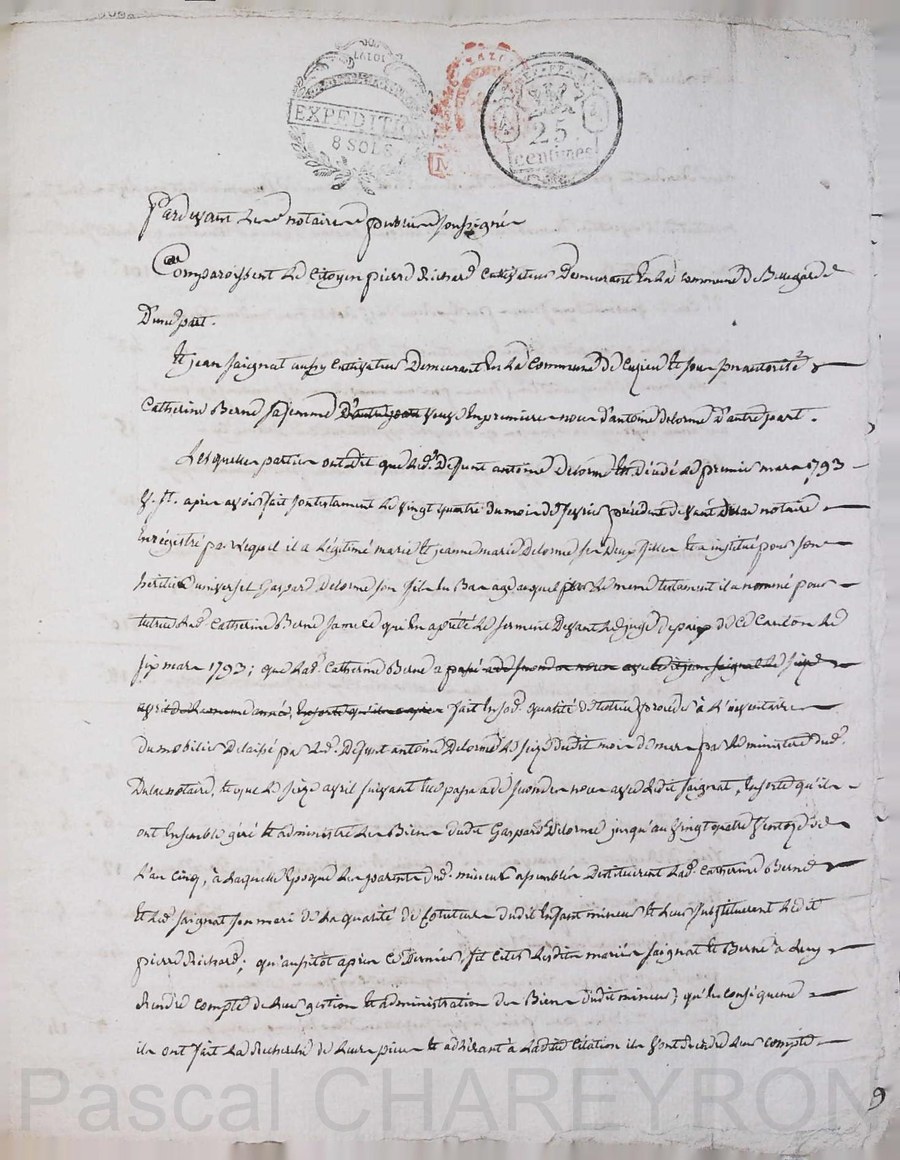 EXPEDITION
8 SOLS
25
centimes
Pardevant Les notaires publics soussignés
Comparoissent Le Citoyen pierre Richard Cultivateur Demeurant En La Commune de Bellegarde
D'une part.
Et jean Saignat aussy Cultivateur Demeurant En La Commune de Cuzieu Et sous son autorité
Catherine Berne sa femme D'autre part veuve En premieres noces d'antoine Delorme D'autre part.
Lesquelles parties ont dit que Led. Defunt antoine Delorme Est décédé Le premier mars 1793
V. St. après avoir fait son testament Le vingt quatre du mois de fevrier précédent devant Dulac notaire
Enregistré par lequel il a Légitimé marie Et jeanne marie Delorme ses Deux filles Et a institué pour son
heritier universel Gaspard Delorme son fils En Bas age auquel par Le meme testament il a nommé pour
tutrice Lad. Catherine Berne sa mere qui En a prété Le serment Devant Le juge De paix de ce Canton Le
six mars 1793; que Lad. Catherine Berne a passé a de secondes noces avec led. jean saignat Le seize
avril de La meme année, En sorte qu'ils fait En sad. qualité de tutrice procéder à L'inventaire
Du mobilier Delaissé par Led. Defunt antoine Delorme Le seize dudit mois de mars par Le ministere dud.
Dulac notaire, Et que Le seize avril suivant Elle passa a de secondes noces avec Ledit Saignat, En sorte qu'ils
ont Ensemble géré Et administré Les Biens dudit Gaspard Delorme jusqu'au vingt quatre ventose de
L'an Cinq, à Laquelle Epoque Les parents dud. mineur assemblés Destituerent Lad. Catherine Berne
Et Led. Saignat son mari de La qualité de Cotuteurs dudit Enfant mineur Et Leur substituerent Ledit
pierre Richard; qu'aussitot après Ce Dernier, fit citer Lesdits mariés Saignat Et Berne à Luy
Rendre Compte de Leur gestion Et administration des Biens dudit mineur; qu'En consequence
ils ont fait La Recherche de Leurs pieces Et adhérant à Ladite Citation ils vont Rendre Leur Compte
9
Pascal CHAREYRON